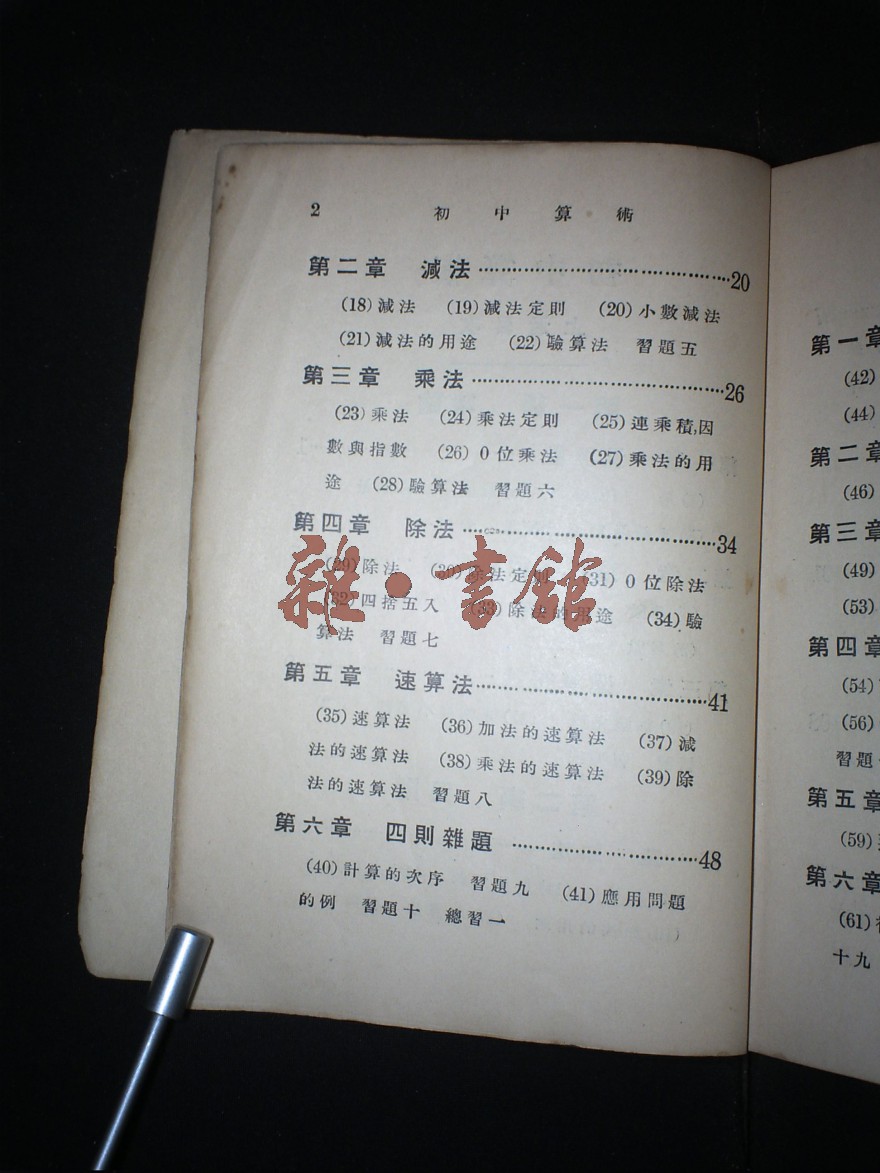 2 初中算術
第二章 減法 20
(18)減法 (19)減法定則 (20)小數減法
(21)減法的用途 (22)驗算法 習題五
第三章 乘法 26
(23)乘法 (24)乘法定則 (25)連乘積,因
數與指數 (26) 0位乘法 (27)乘法的用
途 (28)驗算法 習題六
第四章 除法 34
(29)除法 (30)除法定則 (31) 0位除法
(32)四捨五入 (33)除法的用途 (34)驗
算法 習題七
第五章 速算法 41
(35)速算法 (36)加法的速算法 (37)減
法的速算法 (38)乘法的速算法 (39)除
法的速算法 習題八
第六章 四則雜題 48
(40)計算的次序 習題九 (41)應用問題
的例 習題十 總習一
雜·書館
第一章
(42)
(44)
第二章
(46)
第三章
(49)
(53)
第四章
(54)
(56)
習題
第五章
(59)
第六章
(61)
十九